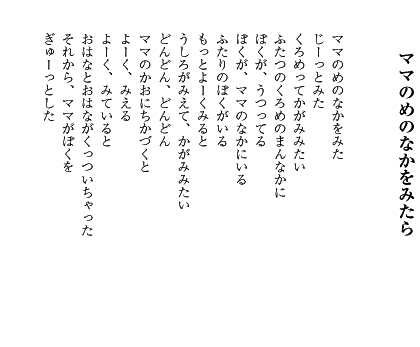 ママのめのなかをみたら
ママのめのなかをみた
じーっとみた
くろめってかがみみたい
ふたつのくろめのまんなかに
ぼくが、うつってる
ぼくが、ママのなかにいる
ふたりのぼくがいる
もっとよーくみると
うしろがみえて、かがみみたい
どんどん、どんどん
ママのかおにちかづくと
よーく、みえる
よーく、みていると
おはなとおはながくっついちゃった
それから、ママがぼくを
ぎゅーっとした